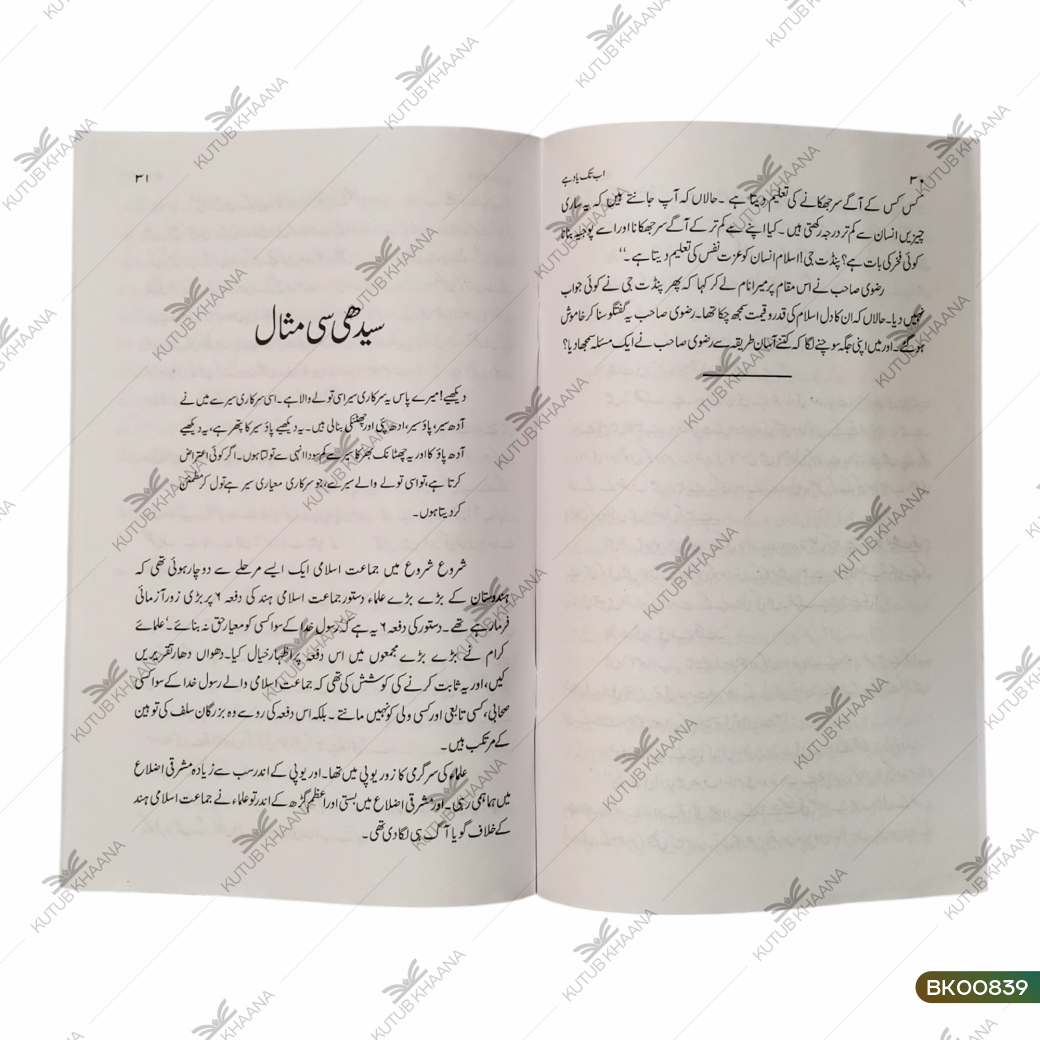 ۳۰
اب تک یاد ہے
کس کس کے آگے سر جھکانے کی تعلیم دیتا ہے ۔ حالاں کہ آپ جانتے ہیں کہ یہ ساری
چیزیں انسان سے کم تر درجہ رکھتی ہیں ۔ کیا اپنے سے کم تر کے آگے سر جھکانا اور اسے پوجیہ بنانا
کوئی فخر کی بات ہے؟ پنڈت جی! اسلام انسان کو عزت نفس کی تعلیم دیتا ہے ۔‘‘
رضوی صاحب نے اس مقام پر میرا نام لے کر کہا کہ پھر پنڈت جی نے کوئی جواب
نہیں دیا۔ حالاں کہ ان کا دل اسلام کی قدر و قیمت سمجھ چکا تھا۔ رضوی صاحب یہ گفتگو سنا کر خاموش
ہو گئے ۔ اور میں اپنی جگہ سوچنے لگا کہ کتنے آسان طریقہ سے رضوی صاحب نے ایک مسئلہ سمجھا دیا؟
۳۱
سیدھی سی مثال
دیکھیے! میرے پاس یہ سرکاری سیر اسی تولے والا ہے۔ اسی سرکاری سیر سے میں نے
آدھ سیر، پاؤ سیر، ادھ پئی اور چھٹنکی بنالی ہیں۔ یہ دیکھیے پاؤ سیر کا پتھر ہے، یہ دیکھیے
آدھ پاؤ کا اور یہ چھٹانک بھر کا سیر سے کم سودا انہی سے تولتا ہوں۔ اگر کوئی اعتراض
کرتا ہے، تو اسی تولے والے سیر سے، جو سرکاری معیاری سیر ہے تول کر مطمئن
کر دیتا ہوں۔
شروع شروع میں جماعت اسلامی ایک ایسے مرحلے سے دوچار ہوئی تھی کہ
ہندوستان کے بڑے بڑے علماء دستور جماعت اسلامی ہند کی دفعہ ۶ پر بڑی زور آزمائی
فرما رہے تھے ۔ دستور کی دفعہ ۶ یہ ہے کہ ’رسول خدا کے سوا کسی کو معیار حق نہ بنائے۔‘ علمائے
کرام نے بڑے بڑے مجمعوں میں اس دفعہ پر اظہار خیال کیا۔ دھواں دھار تقریریں
کیں، اور یہ ثابت کرنے کی کوشش کی تھی کہ جماعت اسلامی والے رسول خدا کے سوا کسی
صحابی، کسی تابعی اور کسی ولی کو نہیں مانتے ۔ بلکہ اس دفعہ کی رو سے وہ بزرگان سلف کی توہین
کے مرتکب ہیں۔
علماء کی سرگرمی کا زور یوپی میں تھا۔ اور یوپی کے اندر سب سے زیادہ مشرقی اضلاع
میں ہما ہمی رہی۔ اور مشرقی اضلاع میں بستی اور اعظم گڑھ کے اندر تو علماء نے جماعت اسلامی ہند
کے خلاف گویا آگ ہی لگا دی تھی ۔
KUTUB KHAANA
BK00839